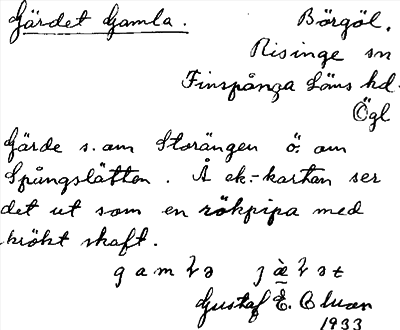 Gärdet Gamla. Börgöl.
Risinge sn
Finspånga Läns hd.
Ögl
Gärde s. om Storängen ö. om
Spångslätten. Å ek.-kartan ser
det ut som en rökpipa med
krökt skaft.
Gustaf E.
1933